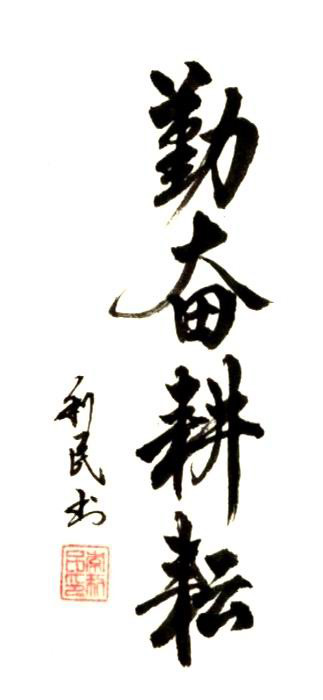 勤奋耕耘
利民书